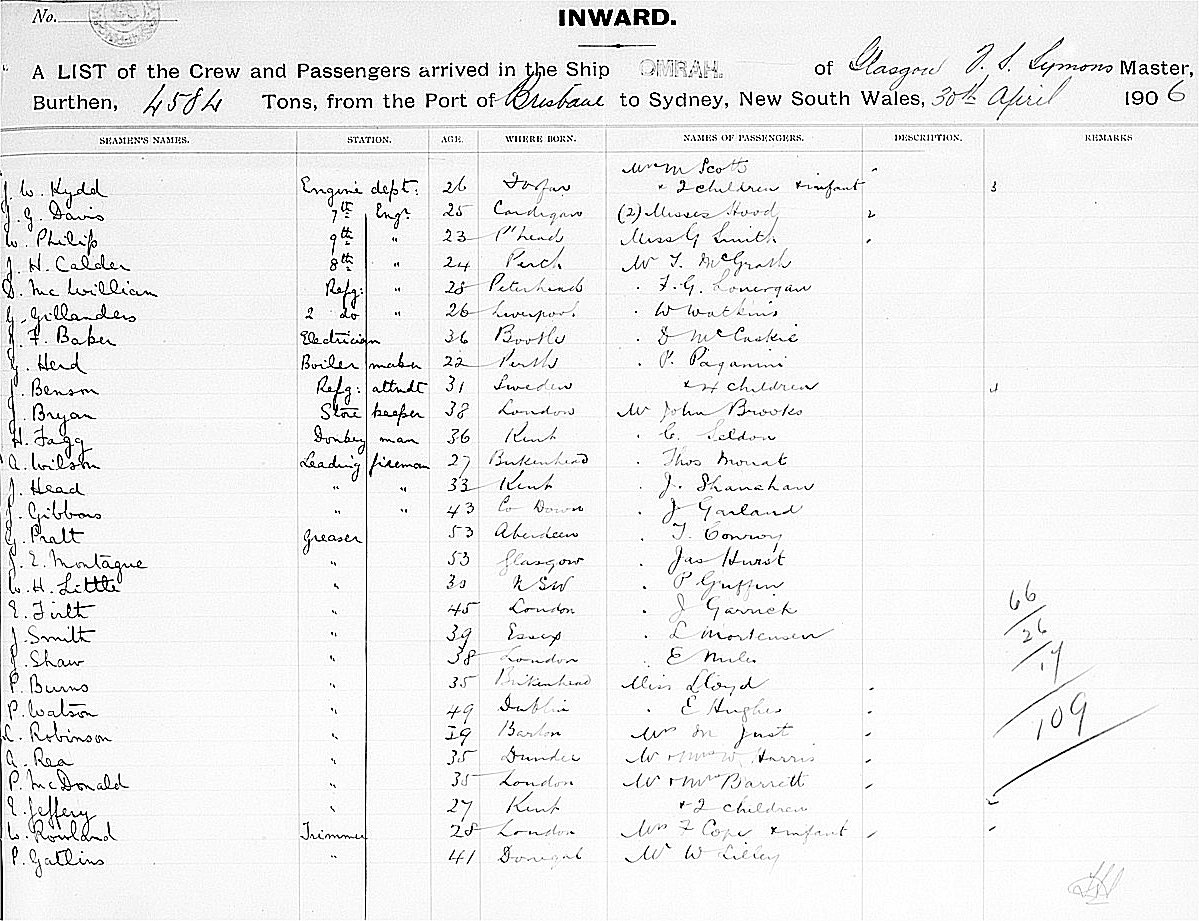 No.
INWARD.
A LIST of the Crew and Passengers arrived in the Ship OMRAH. of Glasgow Symons Master,
Burthen, 4584 Tons, from the Port of Brisbane to Sydney, New South Wales, 30th April 1906
SEAMEN'S NAMES. STATION. AGE. WHERE BORN. NAMES OF PASSENGERS. DESCRIPTION. REMARKS
Mrs M Scott
J. W. Kydd Engine dept: 26 Forfar + 2 children + infant 3
J. G. Davis 7th Engr 25 Cardigan (2) Misses Hood 2
W. Philip 9th " 23 P'head Miss G Smith
J. H. Calder 8th " 24 Perth Mr T. McGrath
D. McWilliam Refg: " 28 Peterhead . F. G. Lonergan
G. Gillanders 2 do " 26 Liverpool . W Watkins
F. Baker Electrician 36 Bootle . D McCaskie
G. Herd Boiler maker 22 Perth . P. Paganini
J. Benson Refg: attndt 31 Sweden + 4 children
J. Bryan Store keeper 38 London Mr John Brooks
H. Fagg Donkey man 36 Kent . C. Seldon
A. Wilson Leading fireman 27 Birkenhead . Thos
J. Head " " 33 Kent . J. Shanahan
J. Gibbons " " 43 Co Down . J Garland
G. Pratt Greaser 53 Aberdeen . T. Conroy
J. E. Montague " 53 Glasgow . Jas Hurst
W. H. Little " 30 NSW . P Griffin
E. Firth " 45 London . J Garrick 66
J. Smith " 39 Essex . L Mortensen 26
J. Shaw " 38 London . E Miles 17
P. Burns " 35 Birkenhead Miss Lloyd
P. Watson " 49 Dublin . E Hughes 109
C. Robinson " 39 Barton Mrs M Just
A. Rea " 35 Dundee Mr + Mrs W. Harris
P. McDonald " 35 London Mr + Mrs Barrett
E. Jeffery " 27 Kent + 2 children 2
W. Rowland Trimmer 28 London Mrs F Cope + infant
P. Gatlins " 41 Donegal Mr W Lilley